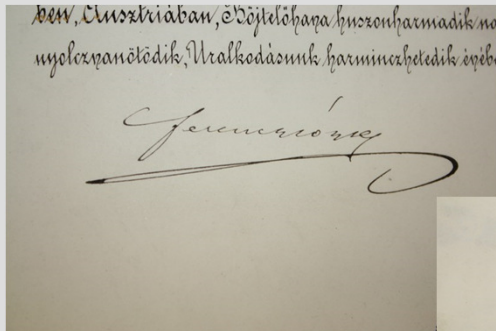 ben, Ausztriában, Bőjtelőhava huszonharmadik na
nyolczvanötödik, Uralkodásunk harminczhetedik évébe
Ferencz József